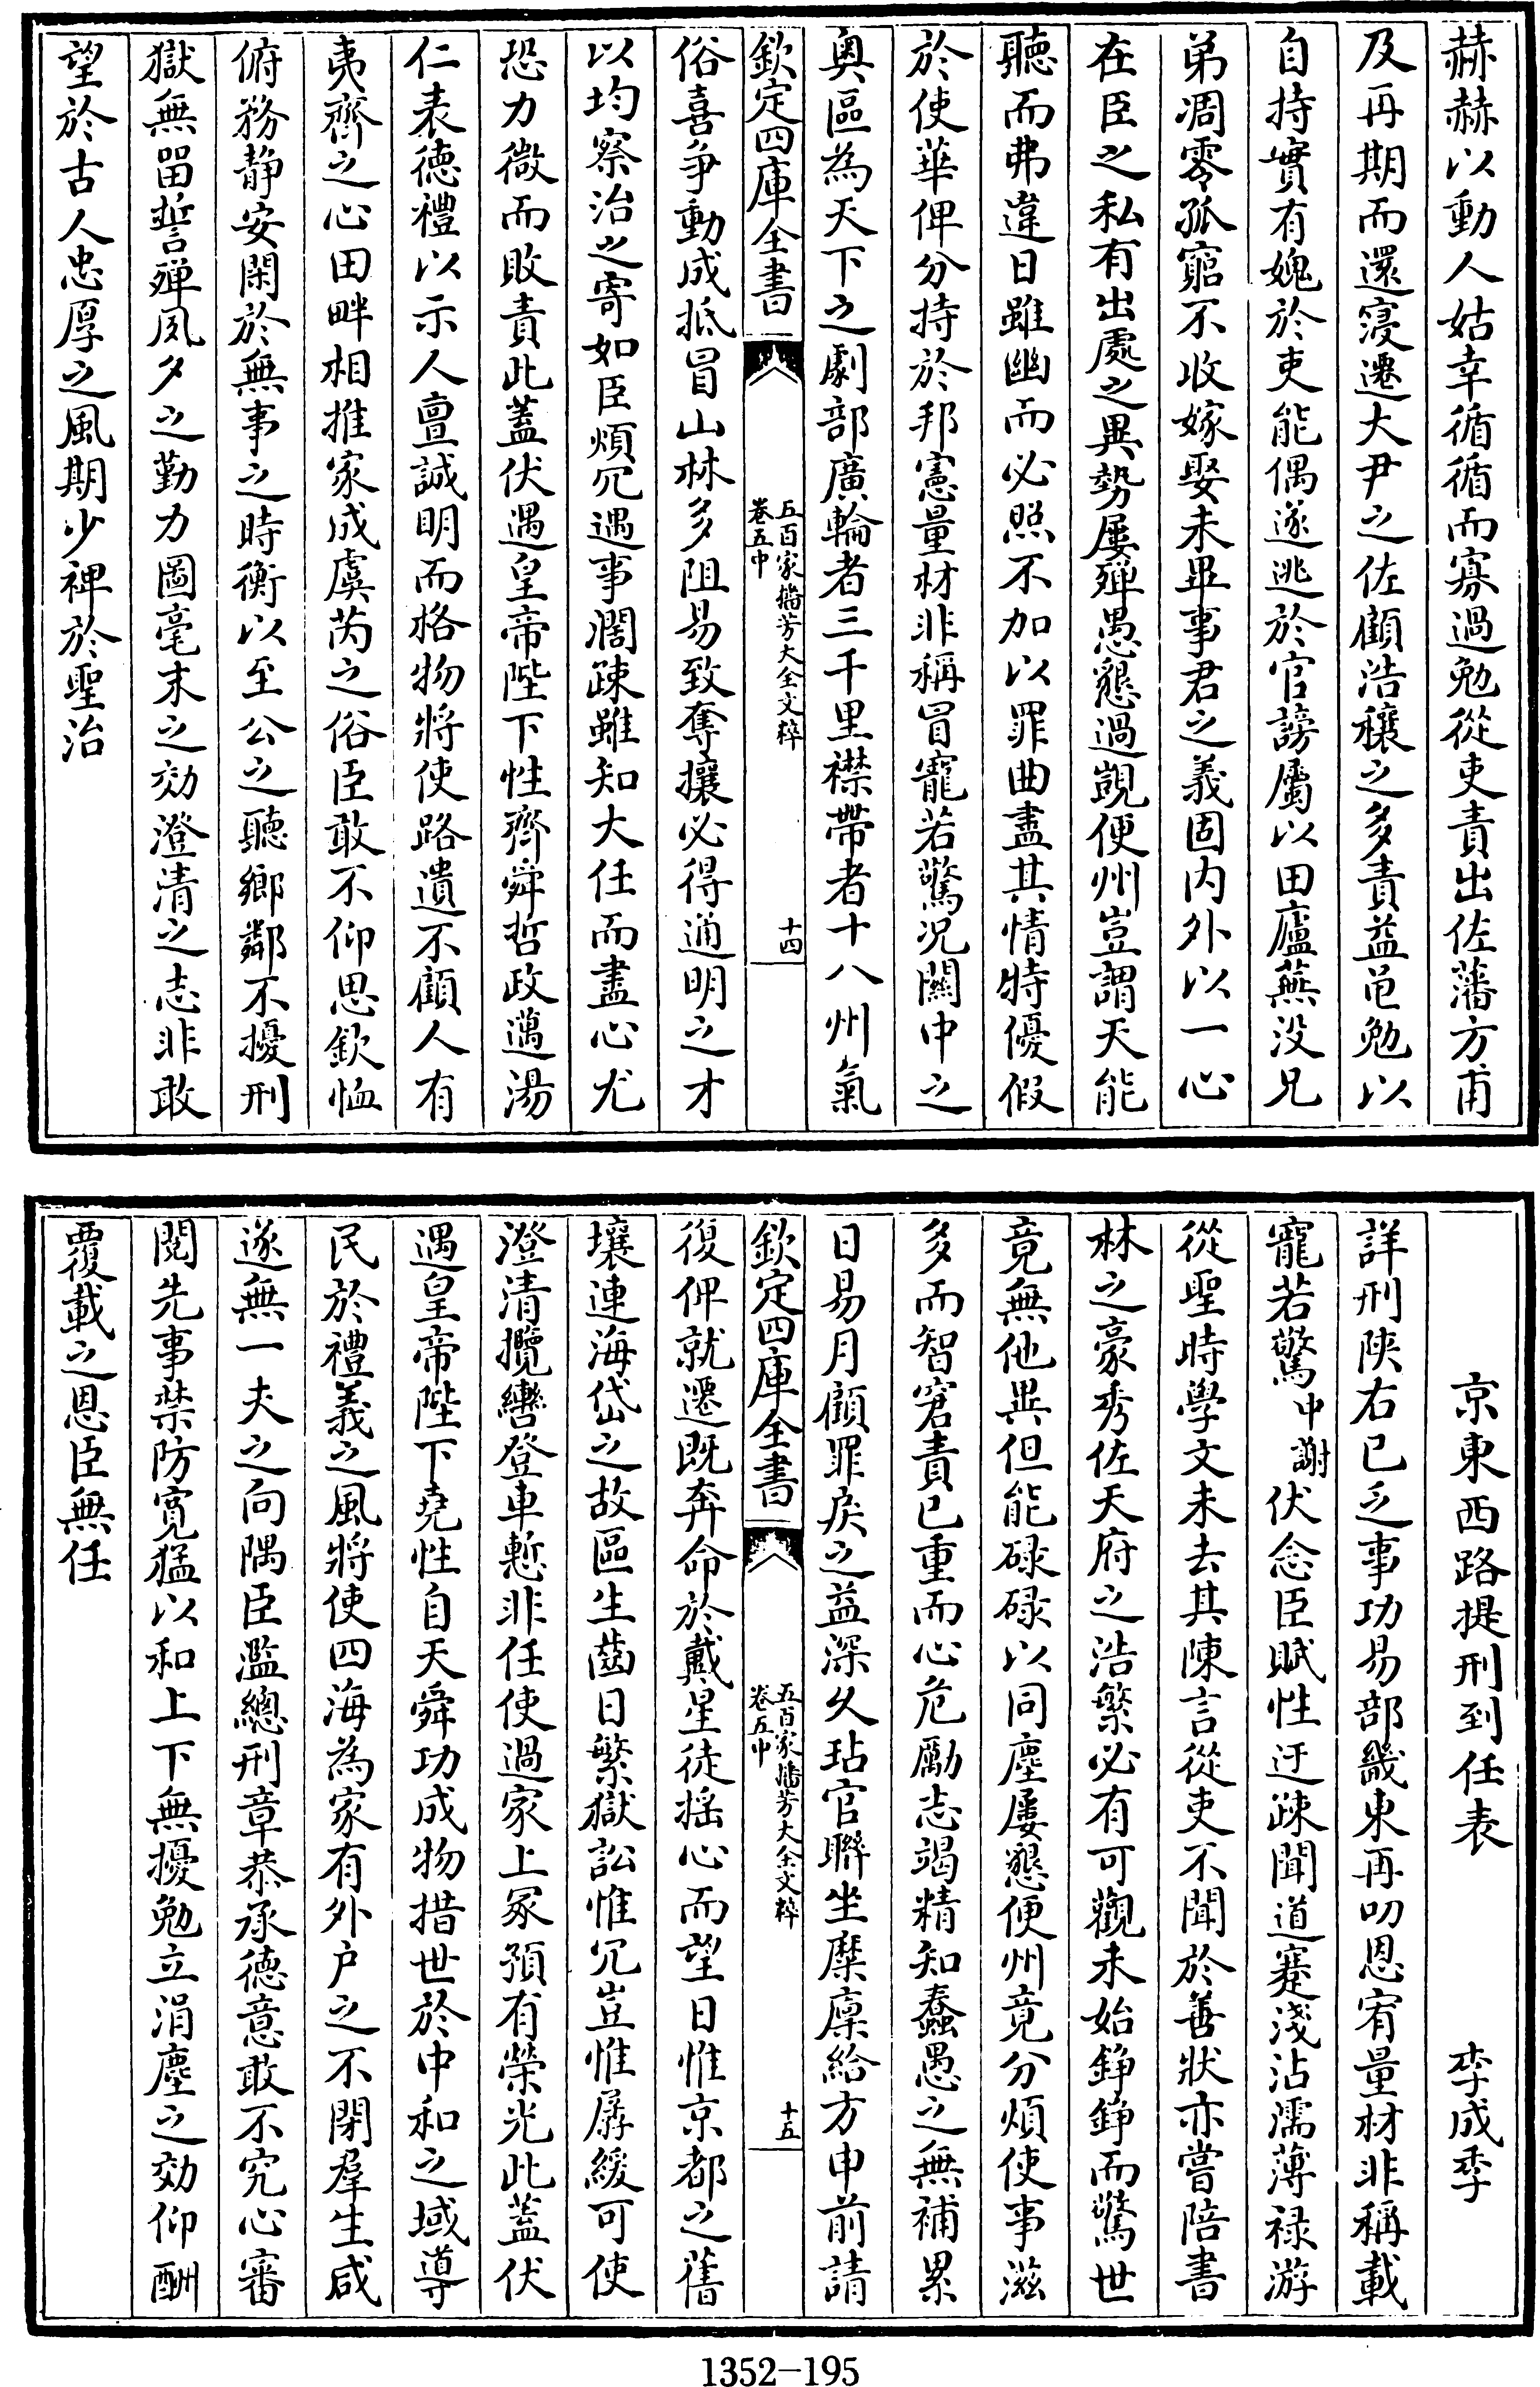 赫赫以動人姑幸循循而寡過勉從吏責出佐藩方甫
及再期而還寖遷大尹之佐顧浩穰之多責益黽勉以
自持實有媿於吏能偶遂逃於官謗屬以田廬蕪没兄
弟凋零孤窮不收嫁娶未畢事君之義固内外以一心
在臣之私有出處之異勢屢殫愚懇過覬便州豈謂天能
聽而弗違日雖幽而必照不加以罪曲盡其情特優假
於使華俾分持於邦憲量材非稱冒寵若驚况關中之
奥區為天下之劇部廣輪者三千里襟帶者十八州氣
欽定四庫全書
五百家播芳大全文粹
卷五中
十四
俗喜爭動成抵冒山林多阻易致奪攘必得通明之才
以均察治之寄如臣煩冗遇事濶疎雖知大任而盡心尤
恐力微而敗責此蓋伏遇皇帝陛下性齊舜哲政邁湯
仁表德禮以示人亶誠明而格物將使路遺不顧人有
夷齊之心田畔相推家成虞芮之俗臣敢不仰思欽恤
俯務静安閑於無事之時衡以至公之聽鄉鄰不擾刑
獄無留誓殫夙夕之勤力圖毫末之効澄清之志非敢
望於古人忠厚之風期少裨於聖治
京東西路提刑到任表 李成季
詳刑陜右已乏事功易部畿東再叨恩宥量材非稱載
寵若驚中謝伏念臣賦性迂疎聞道蹇淺沾濡薄禄游
從聖時學文未去其陳言從吏不聞於善狀亦嘗陪書
林之豪秀佐天府之浩繁必有可觀未始錚錚而驚世
竟無他異但能碌碌以同塵屢懇便州竟分煩使事滋
多而智窘責已重而心危勵志竭精知蠢愚之無補累
日易月顧罪戾之益深久玷官聯坐糜廪給方申前請
欽定四庫全書
五百家播芳大全文粹
卷五中
十五
復俾就遷既奔命於戴星徒揺心而望日惟京都之舊
壤連海岱之故區生齒日繁獄訟惟冗豈惟孱緩可使
澄清攬轡登車慙非任使過家上冢預有榮光此蓋伏
遇皇帝陛下堯性自天舜功成物措世於中和之域導
民於禮義之風將使四海為家有外户之不閉羣生咸
遂無一夫之向隅臣濫總刑章恭承德意敢不究心審
閱先事禁防寛猛以和上下無擾勉立涓塵之効仰酬
覆載之恩臣無任
1352-195